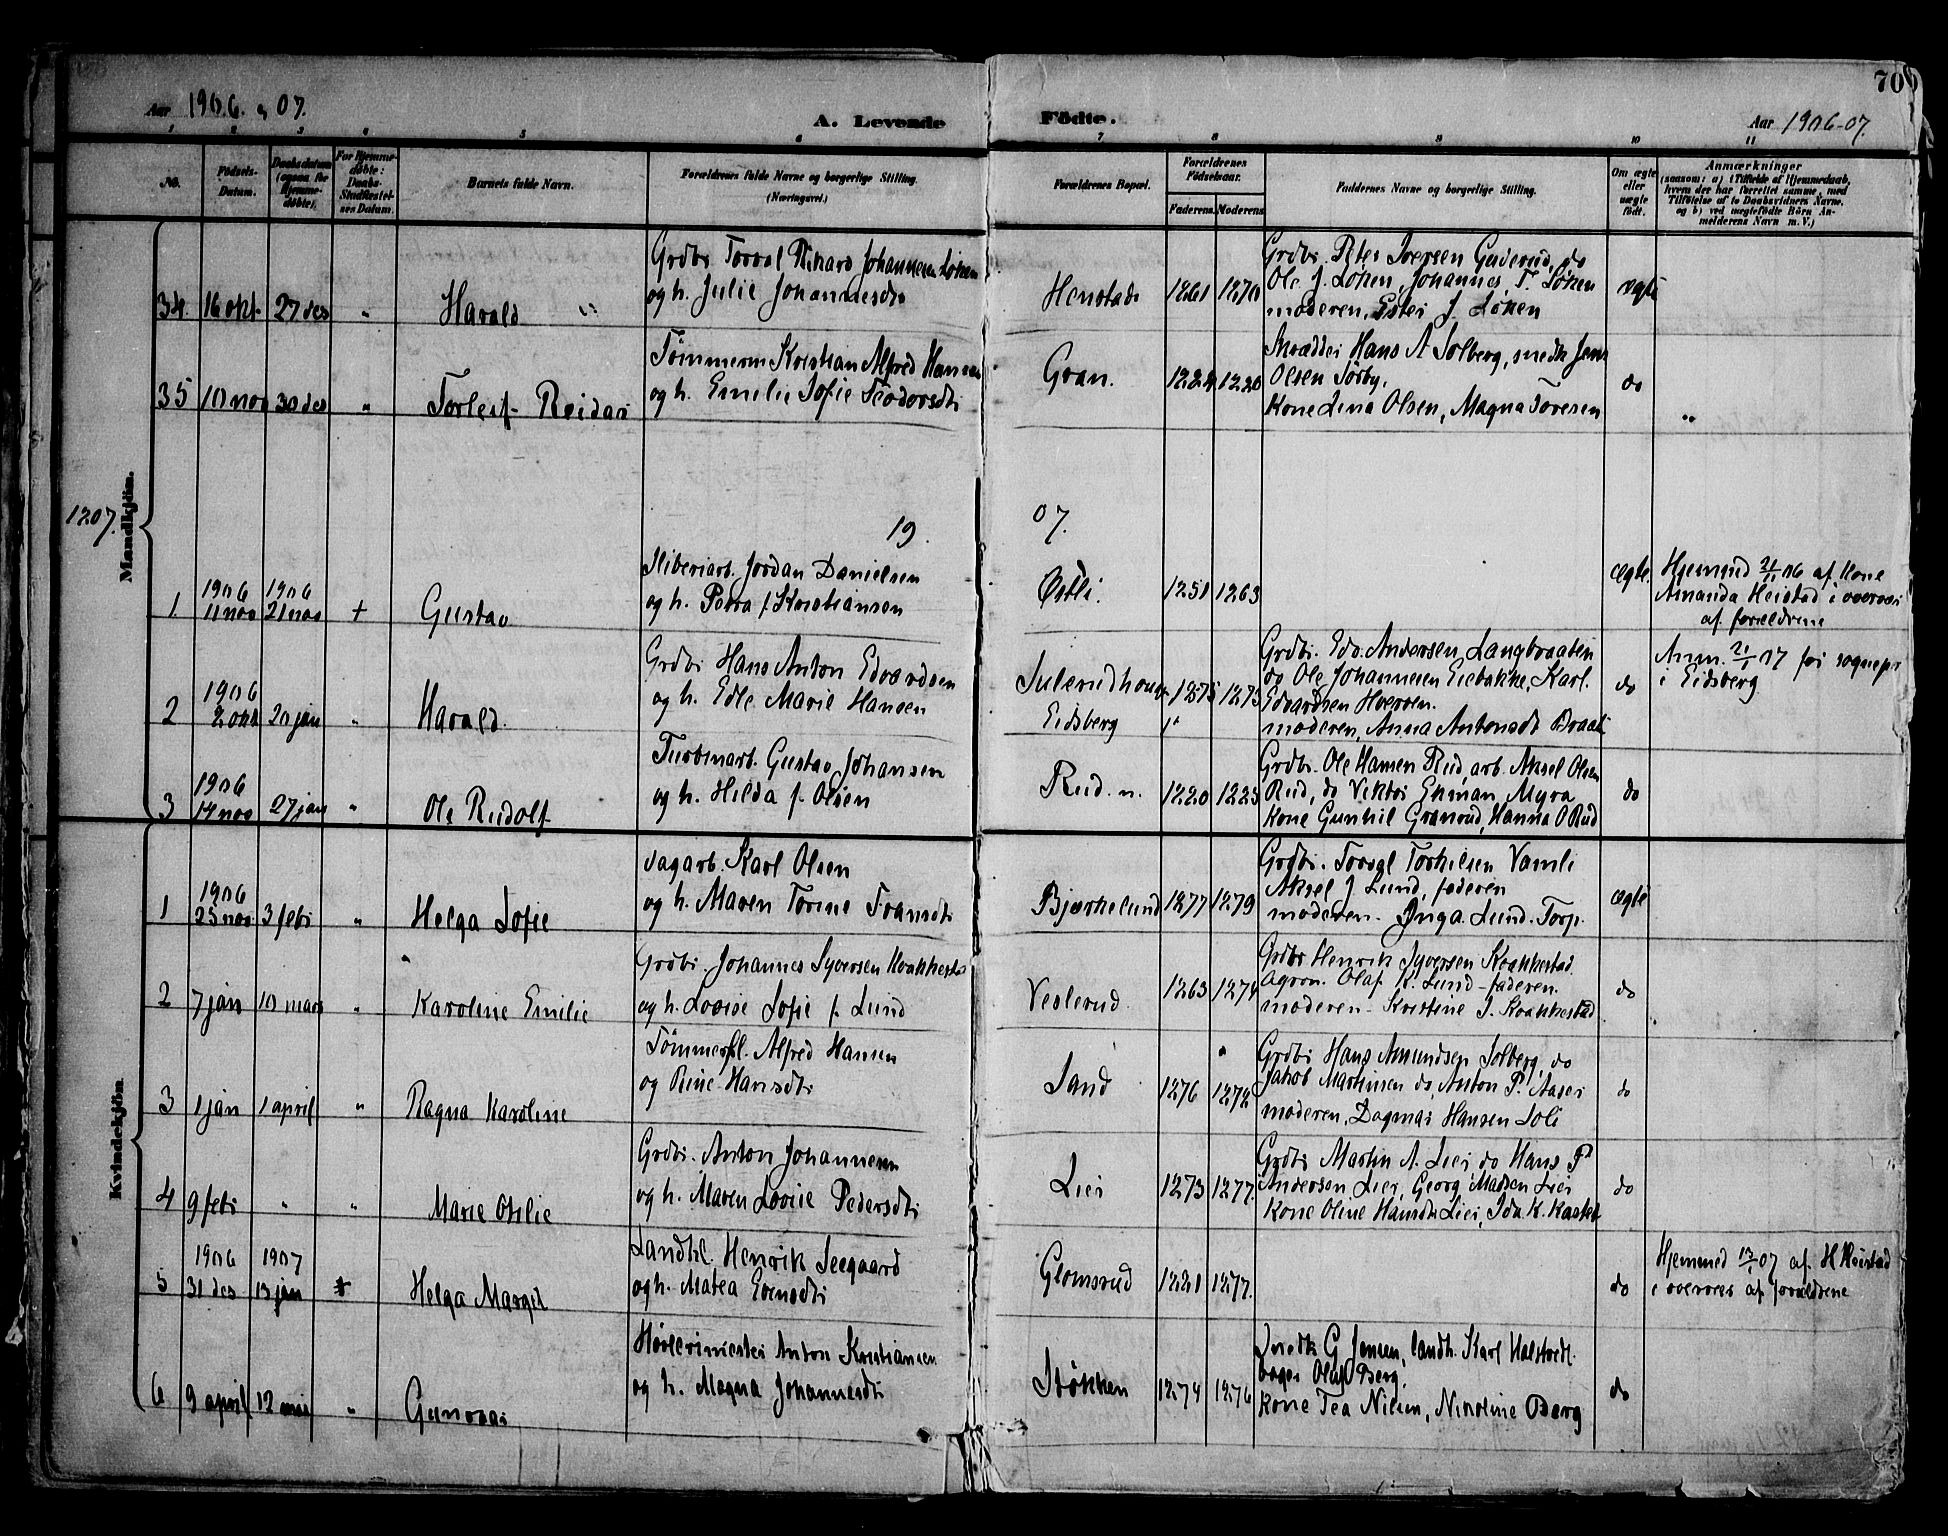 70
Aar 1906 og 07.
A. Levende
Födte.
Aar 1906-07.
1 2 3 4 5 6
7 8 9 10 11
No.
Födsels-
Datum.
Daabsdatum
(ogsaa for
Hjemme-
döbte).
For Hjemme-
döbte:
Daabs-
Stadfæstel-
ses Datum.
Barnets fulde Navn.
Forældrenes fulde Navne og borgerlige Stilling.
(Næringsvei.)
Forældrenes Bopæl.
Forældrenes
Födselsaar.
Faderens. Moderens
Faddernes Navne og borgerlige Stilling.
Om ægte
eller
uægte
födt.
Anmærkninger
(saasom: a) i Tilfælde af Hjemmedaab,
hvem der har forrettet samme, med
Tilföielse af to Daabsvidners Navne,
og b) ved uægtefödte Börn An-
melderens Navn m. V.)
Mandkjön.
34. 16 okt. 27 des " Harald "
Grdbr. Torval Rikard Johannesen Løken
og h. Julie Johannesdtr
Henstad 1861 1870
Grdbr. Peter Iversen Guderud, do
Ole J. Løken, Johannes T. Løken
moderen, Ester J. Løken
ægte
35 10 nov 30 des " Torleif Reidar
Tømmerm Kristian Alfred Hansen
og h. Emilie Sofie Teodorsdtr
Gran. 1884 1880
Skrædder Hans A Solberg, snedk Jens
Olsen Sørby,
Kone Lina Olsen, Magna Toresen
do
"
1907.
19 07.
1 1906 11 nov 1906 21 nov + Gustav
Sliberiarb. Jordan Danielsen
og h. Petra f. Kristiansen
Østli. 1851 1863
ægte.
Hjemmed 21/11 06 af Kone
Amanda Heistad i overvær
af forældrene
2 1906 2 okt 20 jan " Harald.
Grdbr Hans Anton Edvardsen
og h. Edle Marie Hansen
Julerudhaug
Eidsberg
1875 1873
Grdbr. Edv. Andersen, Langbraaten
do Ole Johannesen Eiebakke, Karl
Edvardsen Hversen.
moderen, Anna Antonsdt Braat
do
Anm. 21/1 07 for sognepr
i Eidsberg
3 1906 14 nov 27 jan " Ole Rudolf
Turbinarb. Gustav Johansen
og h. Hilda f. Olsen
Rud. n. 1880 1883
Grdbr. Ole Hansen Rud, arb. Aksel Olsen
Rud, do Viktor Ekman, Myra
Kone Gunhil Granrud, Hanna O Rud
do
Kvindekjön.
1 1906 25 nov 3 febr " Helga Sofie
dagarb. Karl Olsen
og h. Maren Torine Fransdtr
Bjørkelund 1877 1879
Grdbr. Torvgl Torkilsen Vamli
Aksel J Lund, faderen
moderen. Inga Lund. Torp.
ægte
2 7 jan 10 mars " Karoline Emilie
Grdbr. Johannes Syversen Krakkestad
og h. Lovise Sofie f. Lund
Veslerud. 1863 1874
Grdbr Henrik Syversen Krakkestad.
Agron. Olaf K. Lund - faderen.
moderen - Kristine J. Krakkestad
do
3 1 jan 1 april " Ragna Karoline
Tømmerfl. Alfred Hansen
og Rine Hansdtr
Sand 1876 1872
Grdbr Hans Amundsen Solberg, do
Jakob Martinsen do, Anton P. Aaser
moderen, Dagmar Hansen Soli
do
4 9 febr " " Marie Otilie
Grdbr. Anton Johannesen
og h. Maren Lovise Pedersdtr
Lier 1873 1877.
Grdbr Martin A. Lier do Hans P
Andersen Lier, Georg Madsen Lier
Kone Oline Hansdtr Lier, Ida K. Kaatorp
do
5 1906 31 des 1907 13 jan + Helga Margit
Landhl. Henrik Seegaard
og h. Matea Evensdtr
Glomsrud 1881 1877.
do
Hjemmed 13/1 07 af H Heistad
i overvær af forældrene
6 9 april 12 mai " Gunvor
Høvlerimester Anton Kristiansen
og h. Magna Johannesdtr
Støkken 1874 1876
Snedk G Jensen, landh. Karl Halstvedt
bager Olaf Berg,
Kone Tea Nilsen, Nikoline Berg
do